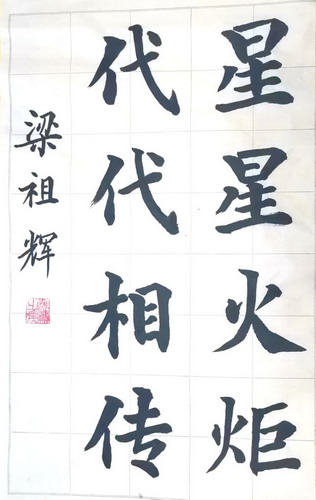 星星火炬
代代相传
梁祖辉